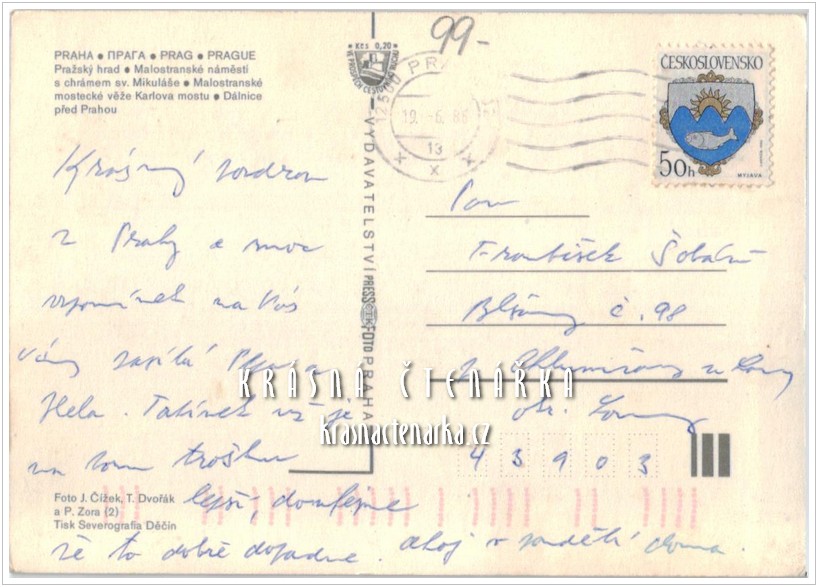 99-
PRAHA ● ПРАГА ● PRAG ● PRAGUE
Pražský hrad ● Malostranské náměstí
s chrámem sv. Mikuláše ● Malostranské
mostecké věže Karlova mostu ● Dálnice
před Prahou
Kčs 0,20
19. -6. 86
13
ČESKOSLOVENSKO
50h
MYJAVA
Krásný pozdrav
z Prahy a moc
vzpomínek na Vás
Vám zasílá a
Hela. Tatínek už je
na tom trošku
lepší, doufejme
že to dobře dopadne. ahoj v doma.
VYDAVATELSTVÍ PRESSFOTO PRAHA
Pan
František
Blšany č. 98
u Loun
okr. Louny
43903
KRÁSNÁ ČTENÁŘKA
krasnactenarka.cz
Foto J. Čížek, T. Dvořák
a P. Zora (2)
Tisk Severografia Děčín